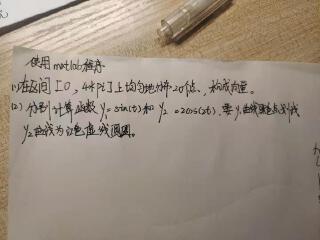 使用matlab程序.
(1)在区间[0,4*pi]上均匀地分布20个点、构成向量.
(2)分别计算函数y₁=sin(t)和y₂=2cos(2t),要y₁曲线黑色点划线
y₂曲线为红色虚线圆圈.